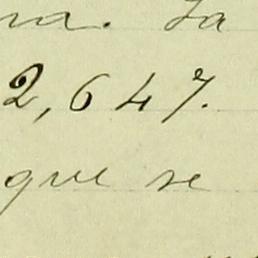 na. La
2,647.
que se